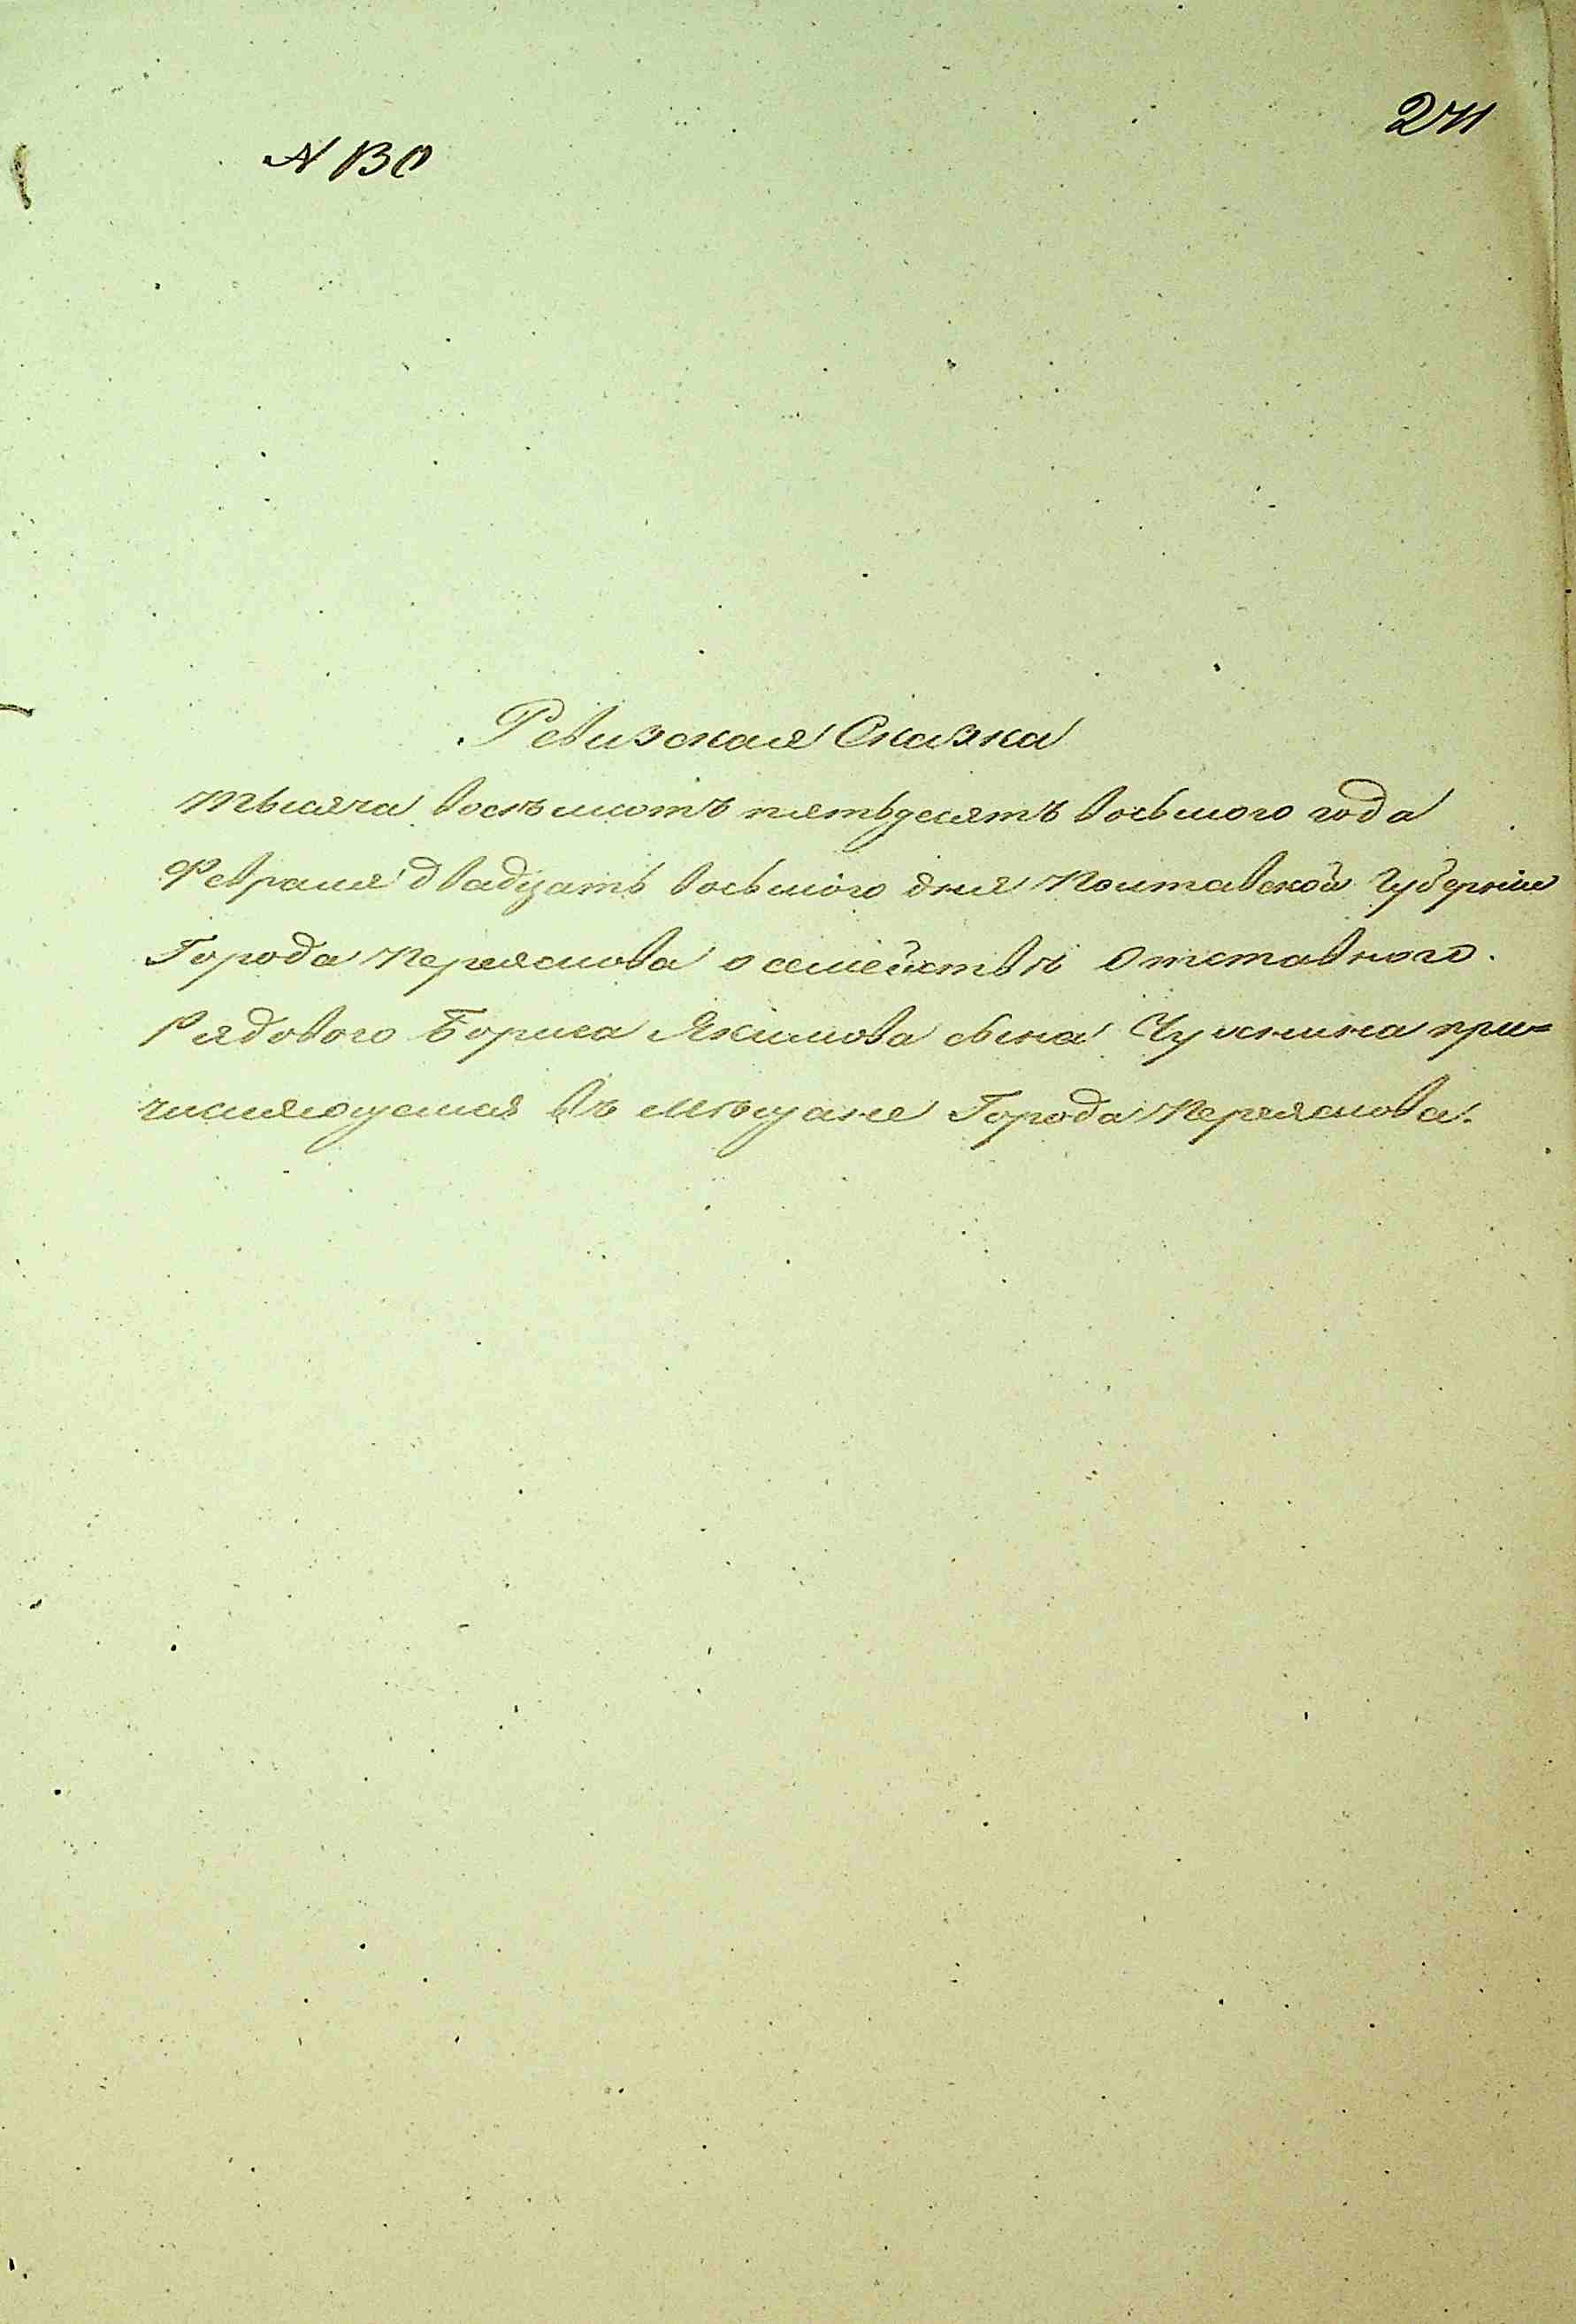 271
N 130
Ревизская Сказка
тысяча восемьсотъ пятьдесятъ восьмого года
Февраля двадцать восьмого дня Полтавской Губерніи
Города Переяслова о семействѣ Отставного
Рядового Бориса Якимова сына при=
числяющемся въ мѣщане Города Переяслова.